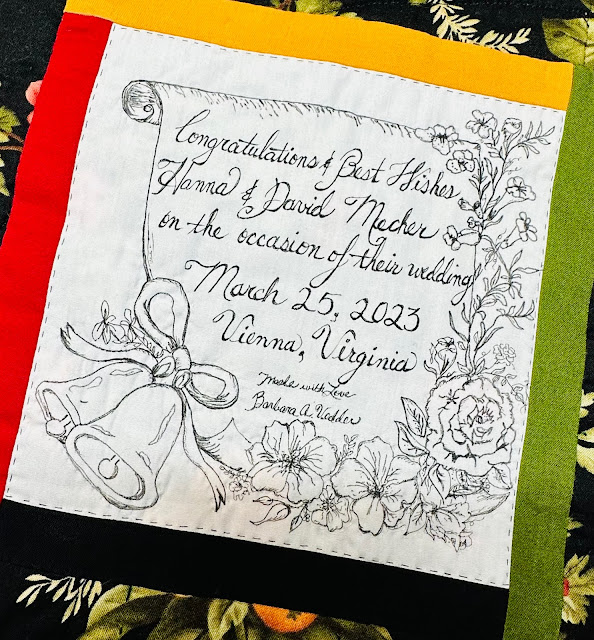 Congratulations & Best Wishes
Hanna & David Mecher
on the occasion of their wedding
March 25, 2023
Vienna, Virginia
Made with Love
Barbara A. Vedder